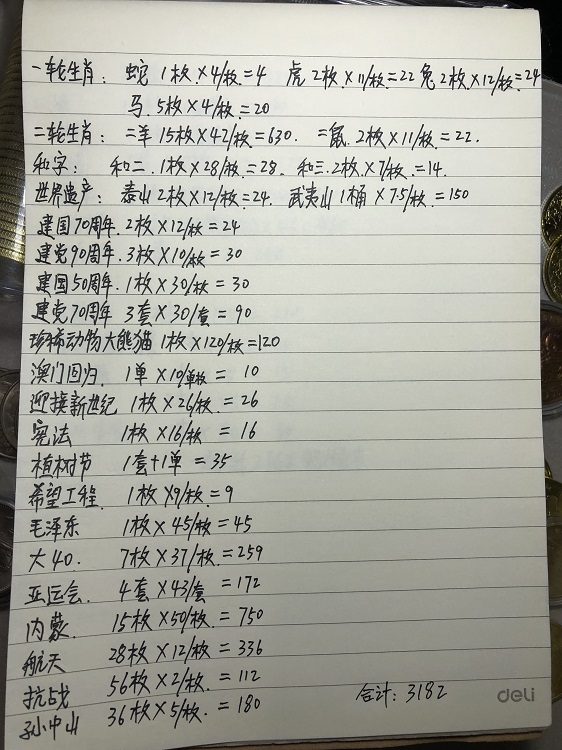 一轮生肖: 蛇 1枚×4/枚=4 虎 2枚×11/枚=22 兔 2枚×12/枚=24
马.5枚×4/枚=20
二轮生肖: 二羊 15枚×42/枚=630. 二鼠.2枚×11/枚=22.
和字: 和二.1枚×28/枚=28. 和三.2枚×7/枚=14.
世界遗产: 泰山 2枚×12/枚=24. 武夷山 1桶×7.5/枚=150
建国70周年.2枚×12/枚=24
建党90周年.3枚×10/枚=30
建国50周年.1枚×30/枚=30
建党70周年 3套×30/套=90
珍稀动物大熊猫 1枚×120/枚=120
澳门回归. 1单×10/单枚= 10
迎接新世纪 1枚×26/枚= 26
宪法 1枚×16/枚= 16
植树节 1套+1单=35
希望工程. 1枚×9/枚=9
毛泽东 1枚×45/枚=45
大40. 7枚×37/枚=259
亚运会. 4套×43/套=172
内蒙. 15枚×50/枚.=750
航天 28枚×12/枚.=336
抗战 56枚×2/枚.=112
孙中山 36枚×5/枚.=180
合计:3182
deli